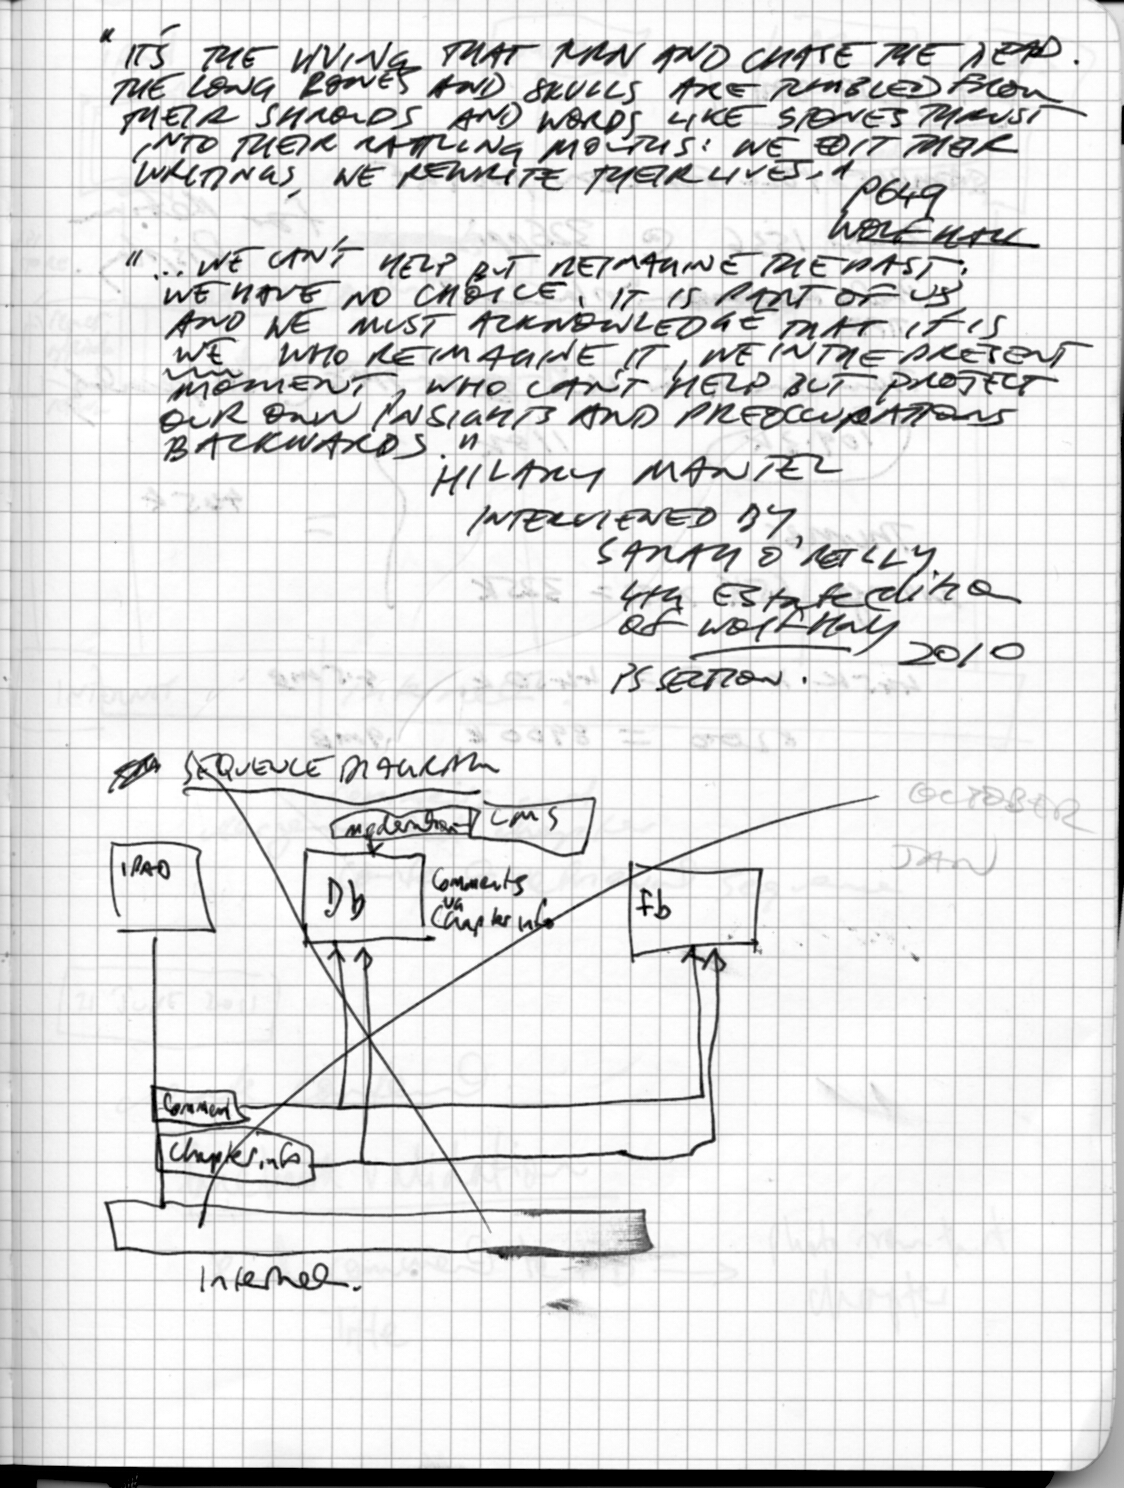 "IT'S THE LIVING THAT TURN AND CHASE THE DEAD.
THE LONG BONES AND SKULLS ARE TUMBLED FROM
THEIR SHROUDS AND WORDS LIKE STONES THRUST
INTO THEIR RATTLING MOUTHS: WE EDIT THEIR
WRITINGS, WE REWRITE THEIR LIVES."
P649
WOLF HALL
"... WE CAN'T HELP BUT REIMAGINE THE PAST;
WE HAVE NO CHOICE. IT IS PART OF US
AND WE MUST ACKNOWLEDGE THAT IT IS
WE WHO REIMAGINE IT, WE IN THE PRESENT
MOMENT, WHO CAN'T HELP BUT PROJECT
OUR OWN INSIGHTS AND PREOCCUPATIONS
BACKWARDS."
HILARY MANTEL
INTERVIEWED BY
SARAH O'REILLY
4th Estate edition
OF WOLF HALL 2010
PS SECTION.
SEQUENCE DIAGRAM
moderation CMS
IPAD
Db
Comments
via
Chapter info
fb
OCTOBER
JAN
Comment
Chapter info
Internet.